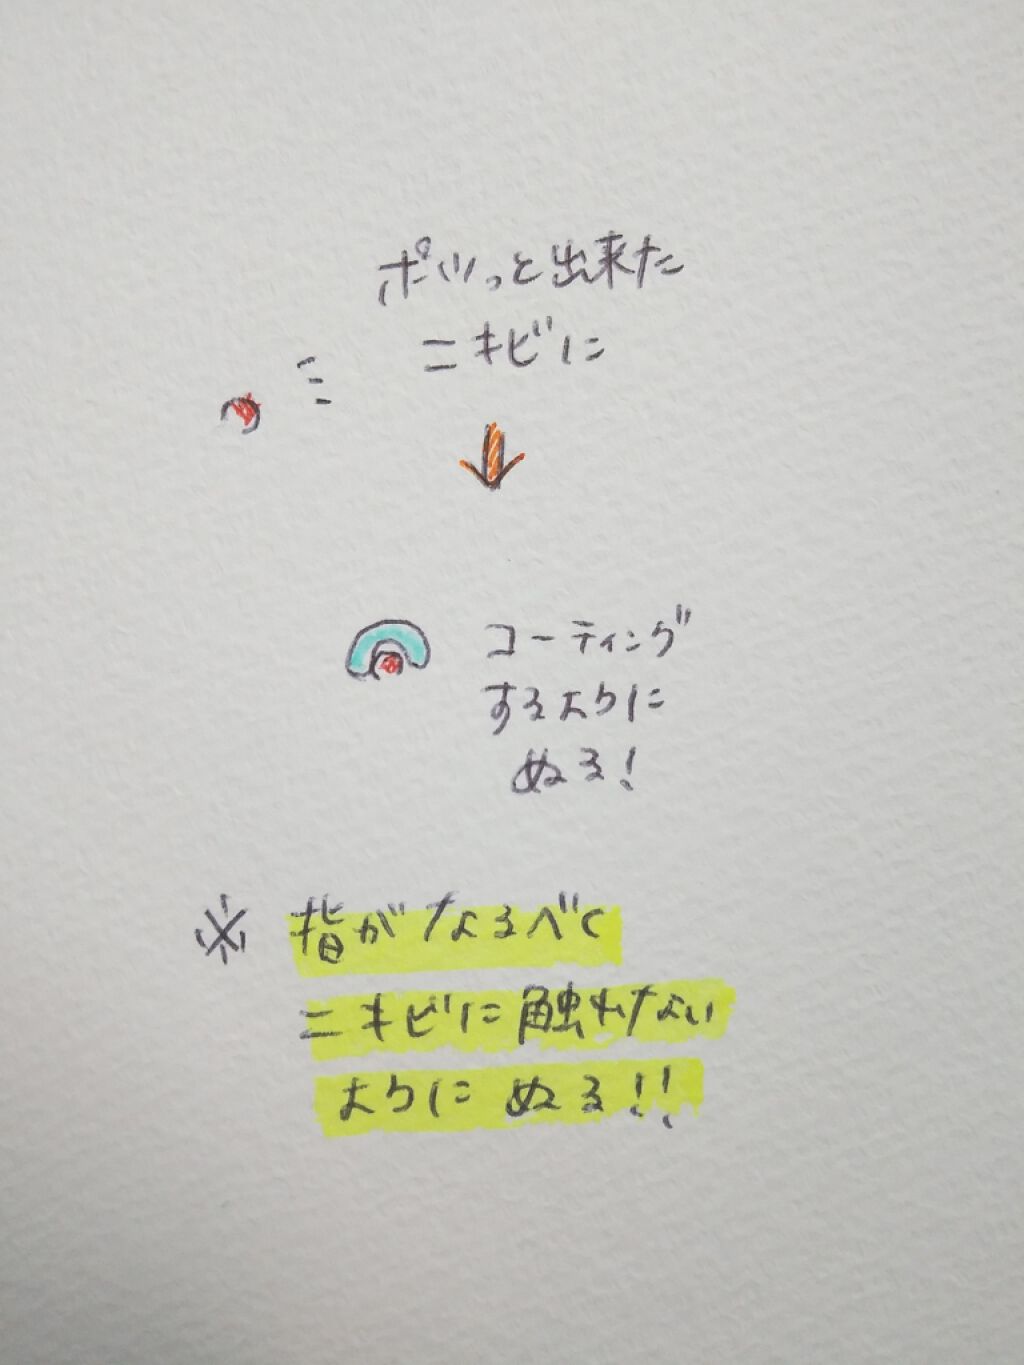 ポツっと出来た
ニキビに
コーティング
するように
ぬる!
※ 指がなるべく
ニキビに触れない
ようにぬる!!